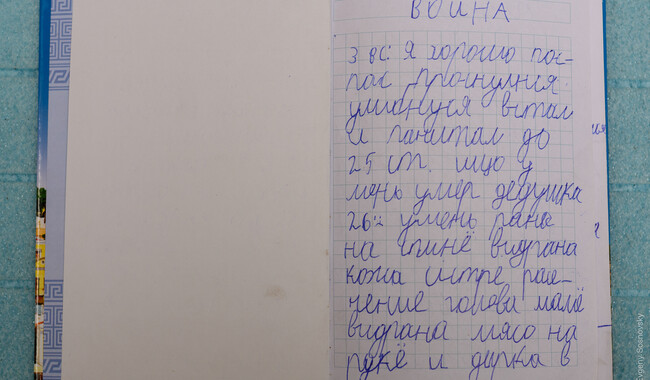 ВОЙНА
З вс: я хорошо пос-
пас проснулися
улибнуся встал
и пачитал до
25 ст. ищо у
мень умер дедушка
26го умень рана
на спинё видрана
кожа систре расе-
чение голова мамё
видрана мясо на
рукё и дирка в
Evgeny Sosnovsky